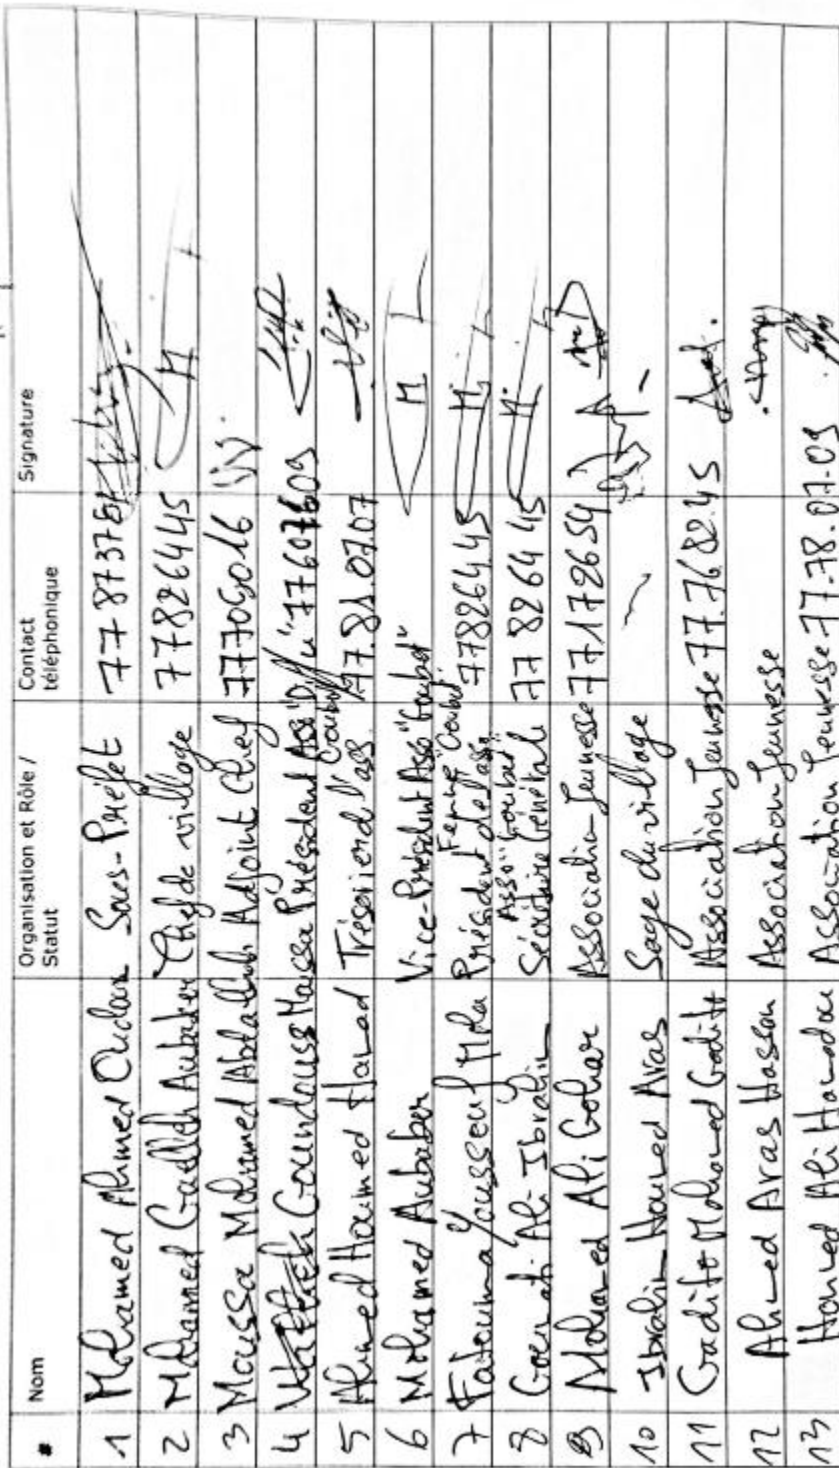 # Nom Organisation et Rôle / Statut Contact téléphonique Signature
1 Mohamed Ahmed Sous-Préfet 77873761
2 Mohamed Aubaker Chef de village 77826445
3 Moussa Mohamed Adjoint Chef 77706016
4 Goundouss Moussa Président Ass 77607609
5 Ahmed Houmed Trésorier d l'ass. Goubet 77.81.07.07
6 Mohamed Aubaker Vice-Président Asso "Goubet"
7 Fatouma Youssouf Président de l'ass Femme Goubet 77826445
8 Ali Ibrahim Asso "Goubet" Sécrétaire Générale 77 8264 45
9 Mohamed Ali Gohar Association Jeunesse 77172654
10 Ibrahim Houmed Aras Sage du village
11 Gadito Mohamed Gadito Association Jeunesse 77.76 82.45
12 Ahmed Aras Hasson Association Jeunesse
13 Houmed Ali Houmadou Association Jeunesse 77.78.07.09